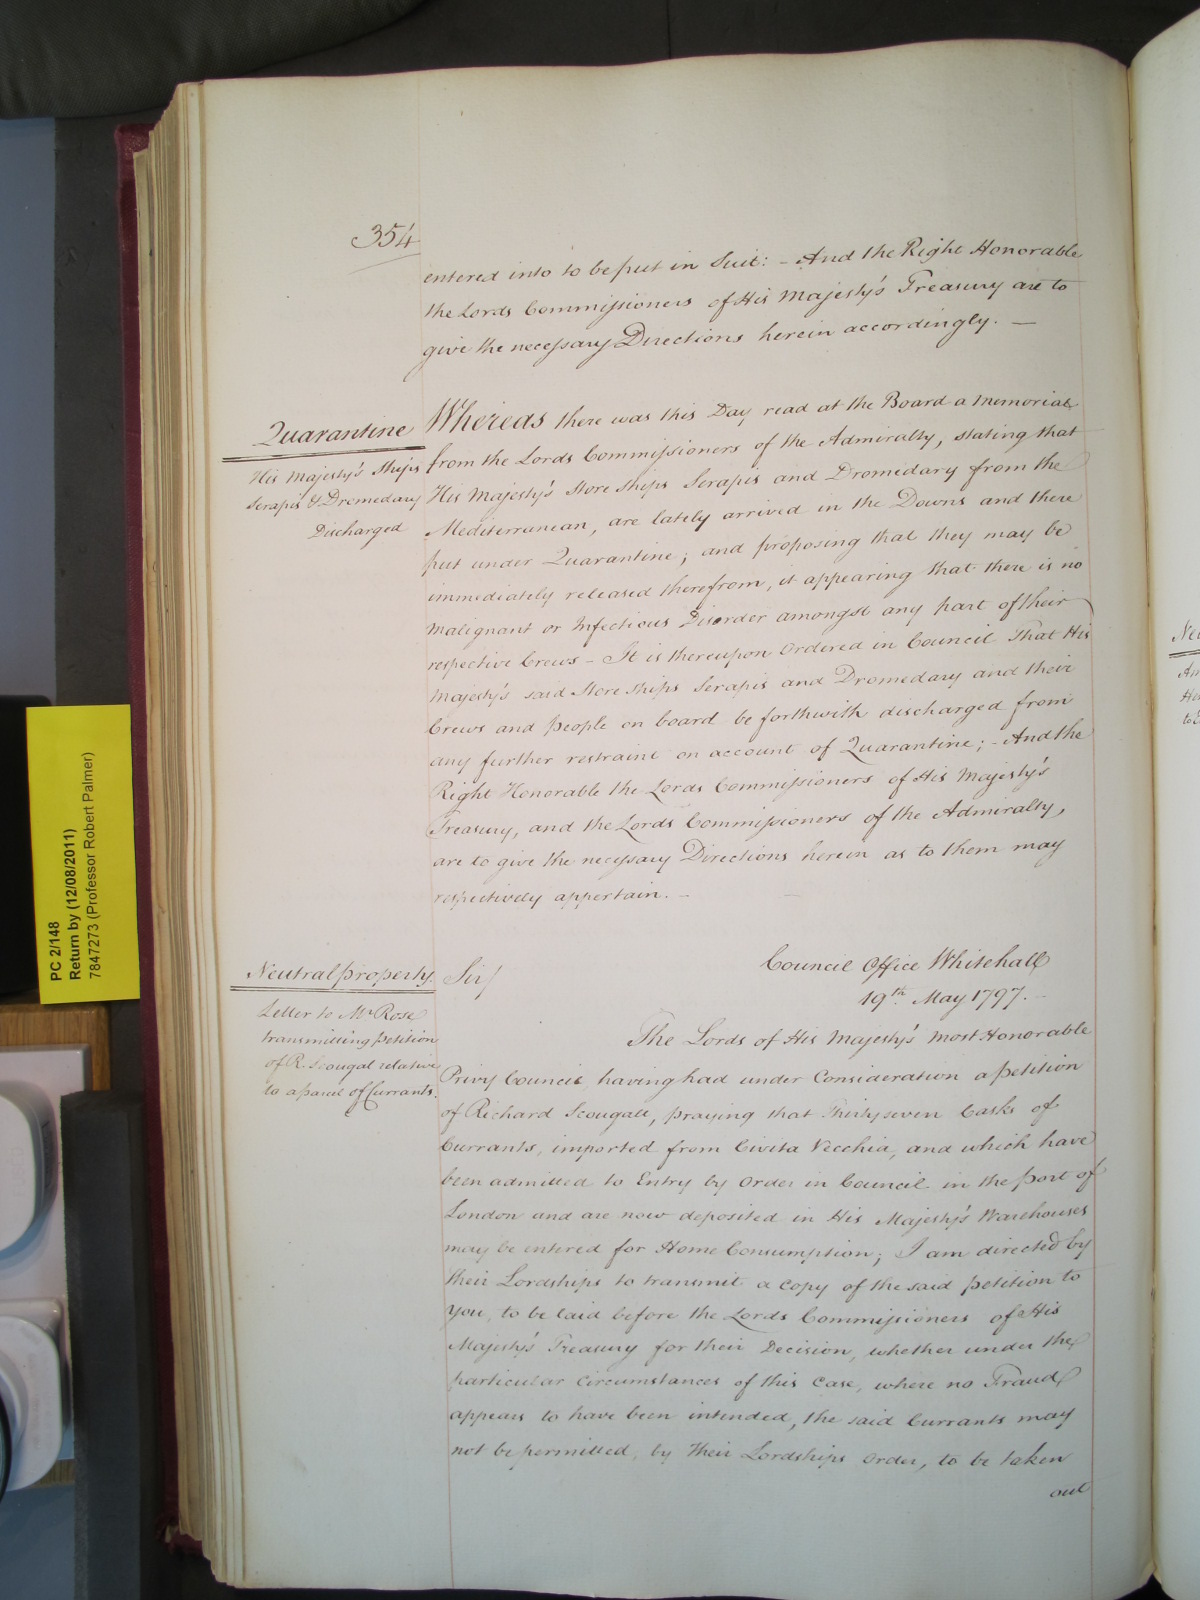 354
entered into to be put in Suit: - And the Right Honorable
the Lords Commissioners of His Majesty's Treasury are to
give the necessary Directions herein accordingly. —
Quarantine
His Majesty's Ships
Serapis & Dromedary
Discharged
Whereas there was this Day read at the Board a Memorial
from the Lords Commissioners of the Admiralty, stating that
His Majesty's Store Ships Serapis and Dromedary from the
Mediterranean, are lately arrived in the Downs and there
put under Quarantine; and proposing that they may be
immediately released therefrom, it appearing that there is no
Malignant or Infectious Disorder amongst any part of their
respective Crews - It is thereupon Ordered in Council That His
Majesty's said Store Ships Serapis and Dromedary and their
Crews and people on board be forthwith discharged from
any further restraint on account of Quarantine; - And the
Right Honorable the Lords Commissioners of His Majesty's
Treasury, and the Lords Commissioners of the Admiralty,
are to give the necessary Directions herein as to them may
respectively appertain. -
Council Office Whitehall
19th May 1797. -
Neutral property.
Letter to Mr Rose
transmitting Petition
of R. Scougal relative
to a parcel of Currants.
Sir/
The Lords of His Majesty's most Honorable
Privy Council having had under Consideration a petition
of Richard Scougall, praying that Thirty seven Casks of
Currants, imported from Civita Vecchia, and which have
been admitted to Entry by Order in Council in the port of
London and are now deposited in His Majesty's Warehouses
may be entered for Home Consumption; I am directed by
their Lordships to transmit a copy of the said petition to
You, to be laid before the Lords Commissioners of His
Majesty's Treasury for their Decision, whether under the
particular Circumstances of this Case, where no Fraud
appears to have been intended, the said Currants may
not be permitted, by Their Lordships Order, to be taken
out
PC 2/148
Return by (12/08/2011)
7847273 (Professor Robert Palmer)